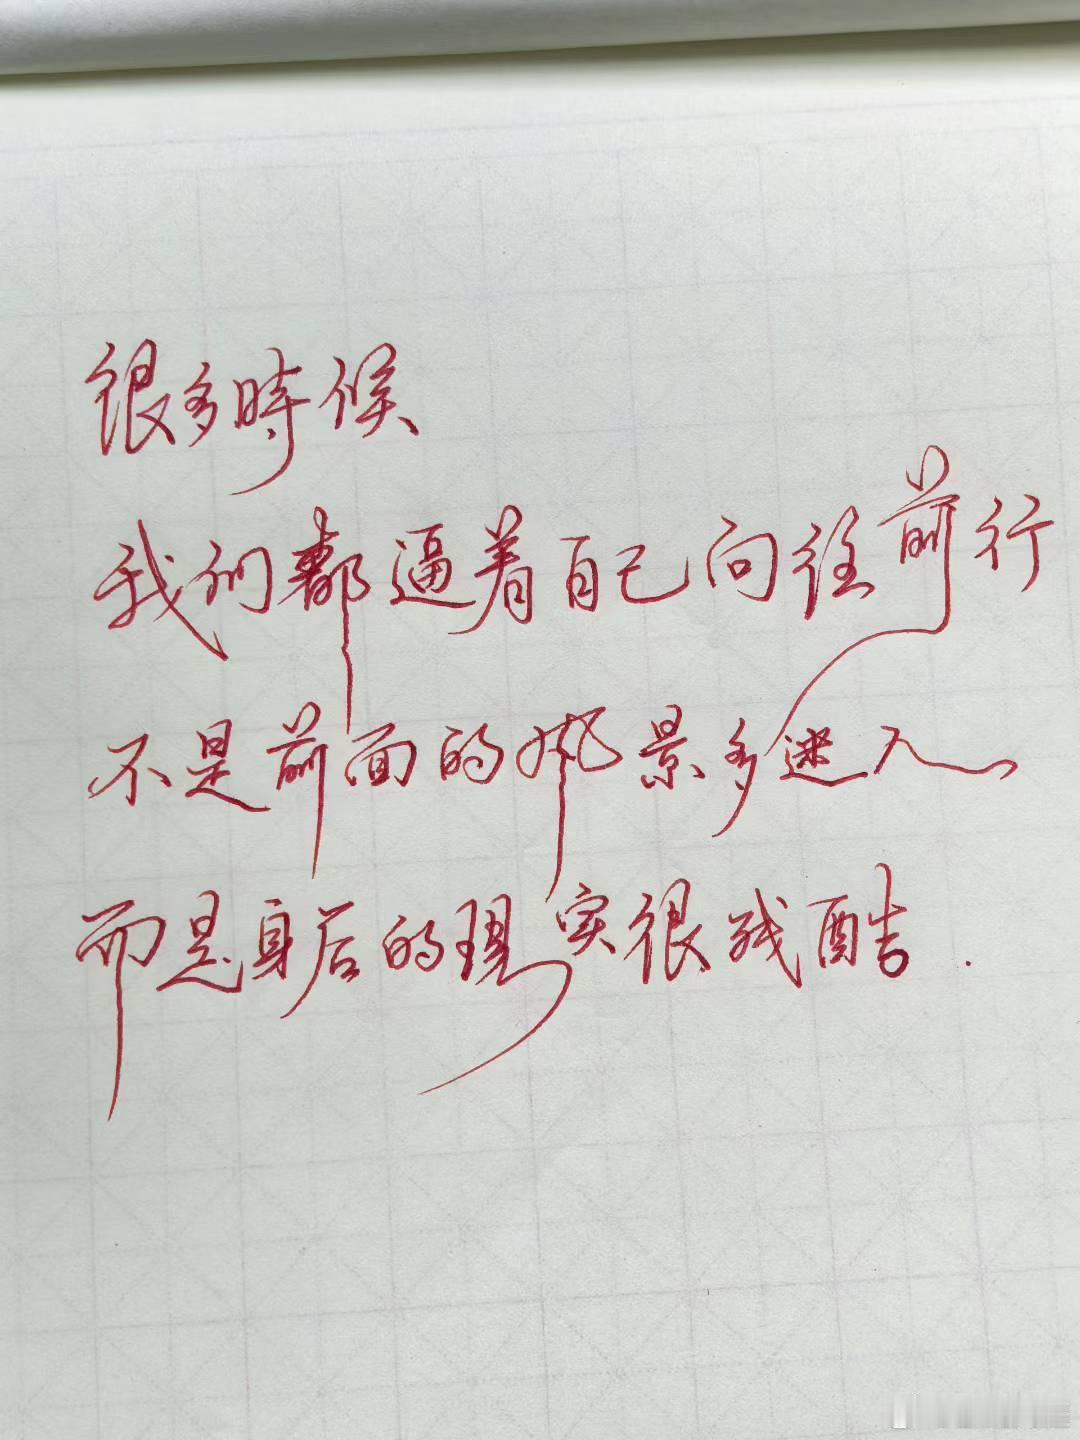 很多時候
我们都逼着自己向往前行
不是前面的风景多迷人
而是身后的现实很残酷.